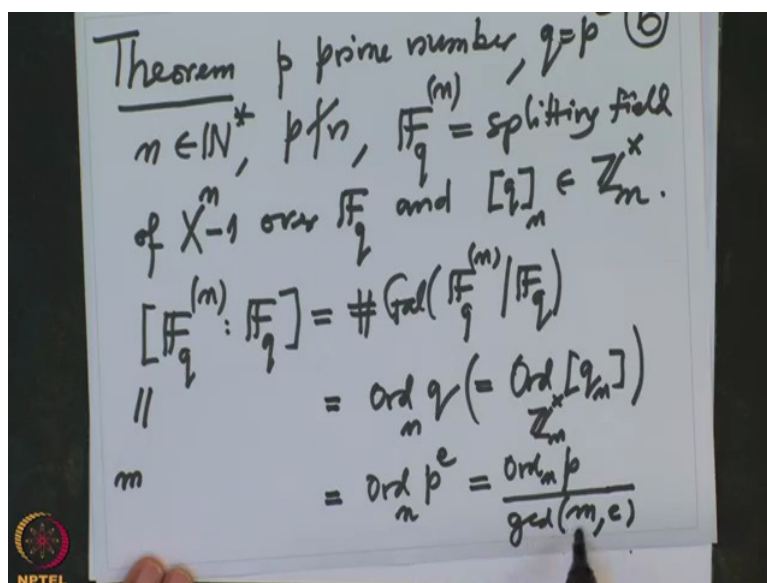 Theorem p prime number, q=p^e ⑥
n ∈ ℕ*, p∤n, 𝔽_q^(n) = splitting field
of X^n-1 over 𝔽_q and [q]_n ∈ ℤ_n^×.
[𝔽_q^(n) : 𝔽_q] = # Gal(𝔽_q^(n) | 𝔽_q)
|| = ord_n q (= Ord_{ℤ_n^×} [q_n])
m = ord_n p^e = ord_n p / gcd(m,e)
NPTEL